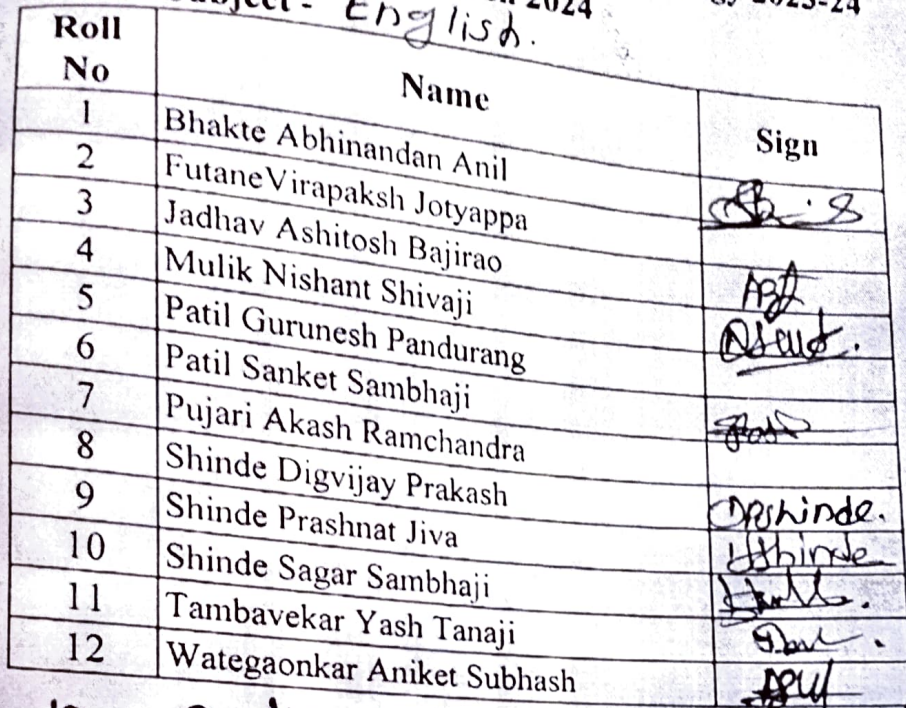 2024
2023-24
Subject - English.
Roll No Name Sign
1 Bhakte Abhinandan Anil
2 FutaneVirapaksh Jotyappa
3 Jadhav Ashitosh Bajirao
4 Mulik Nishant Shivaji
5 Patil Gurunesh Pandurang
6 Patil Sanket Sambhaji
7 Pujari Akash Ramchandra
8 Shinde Digvijay Prakash DPShinde.
9 Shinde Prashnat Jiva Shinde
10 Shinde Sagar Sambhaji
11 Tambavekar Yash Tanaji
12 Wategaonkar Aniket Subhash